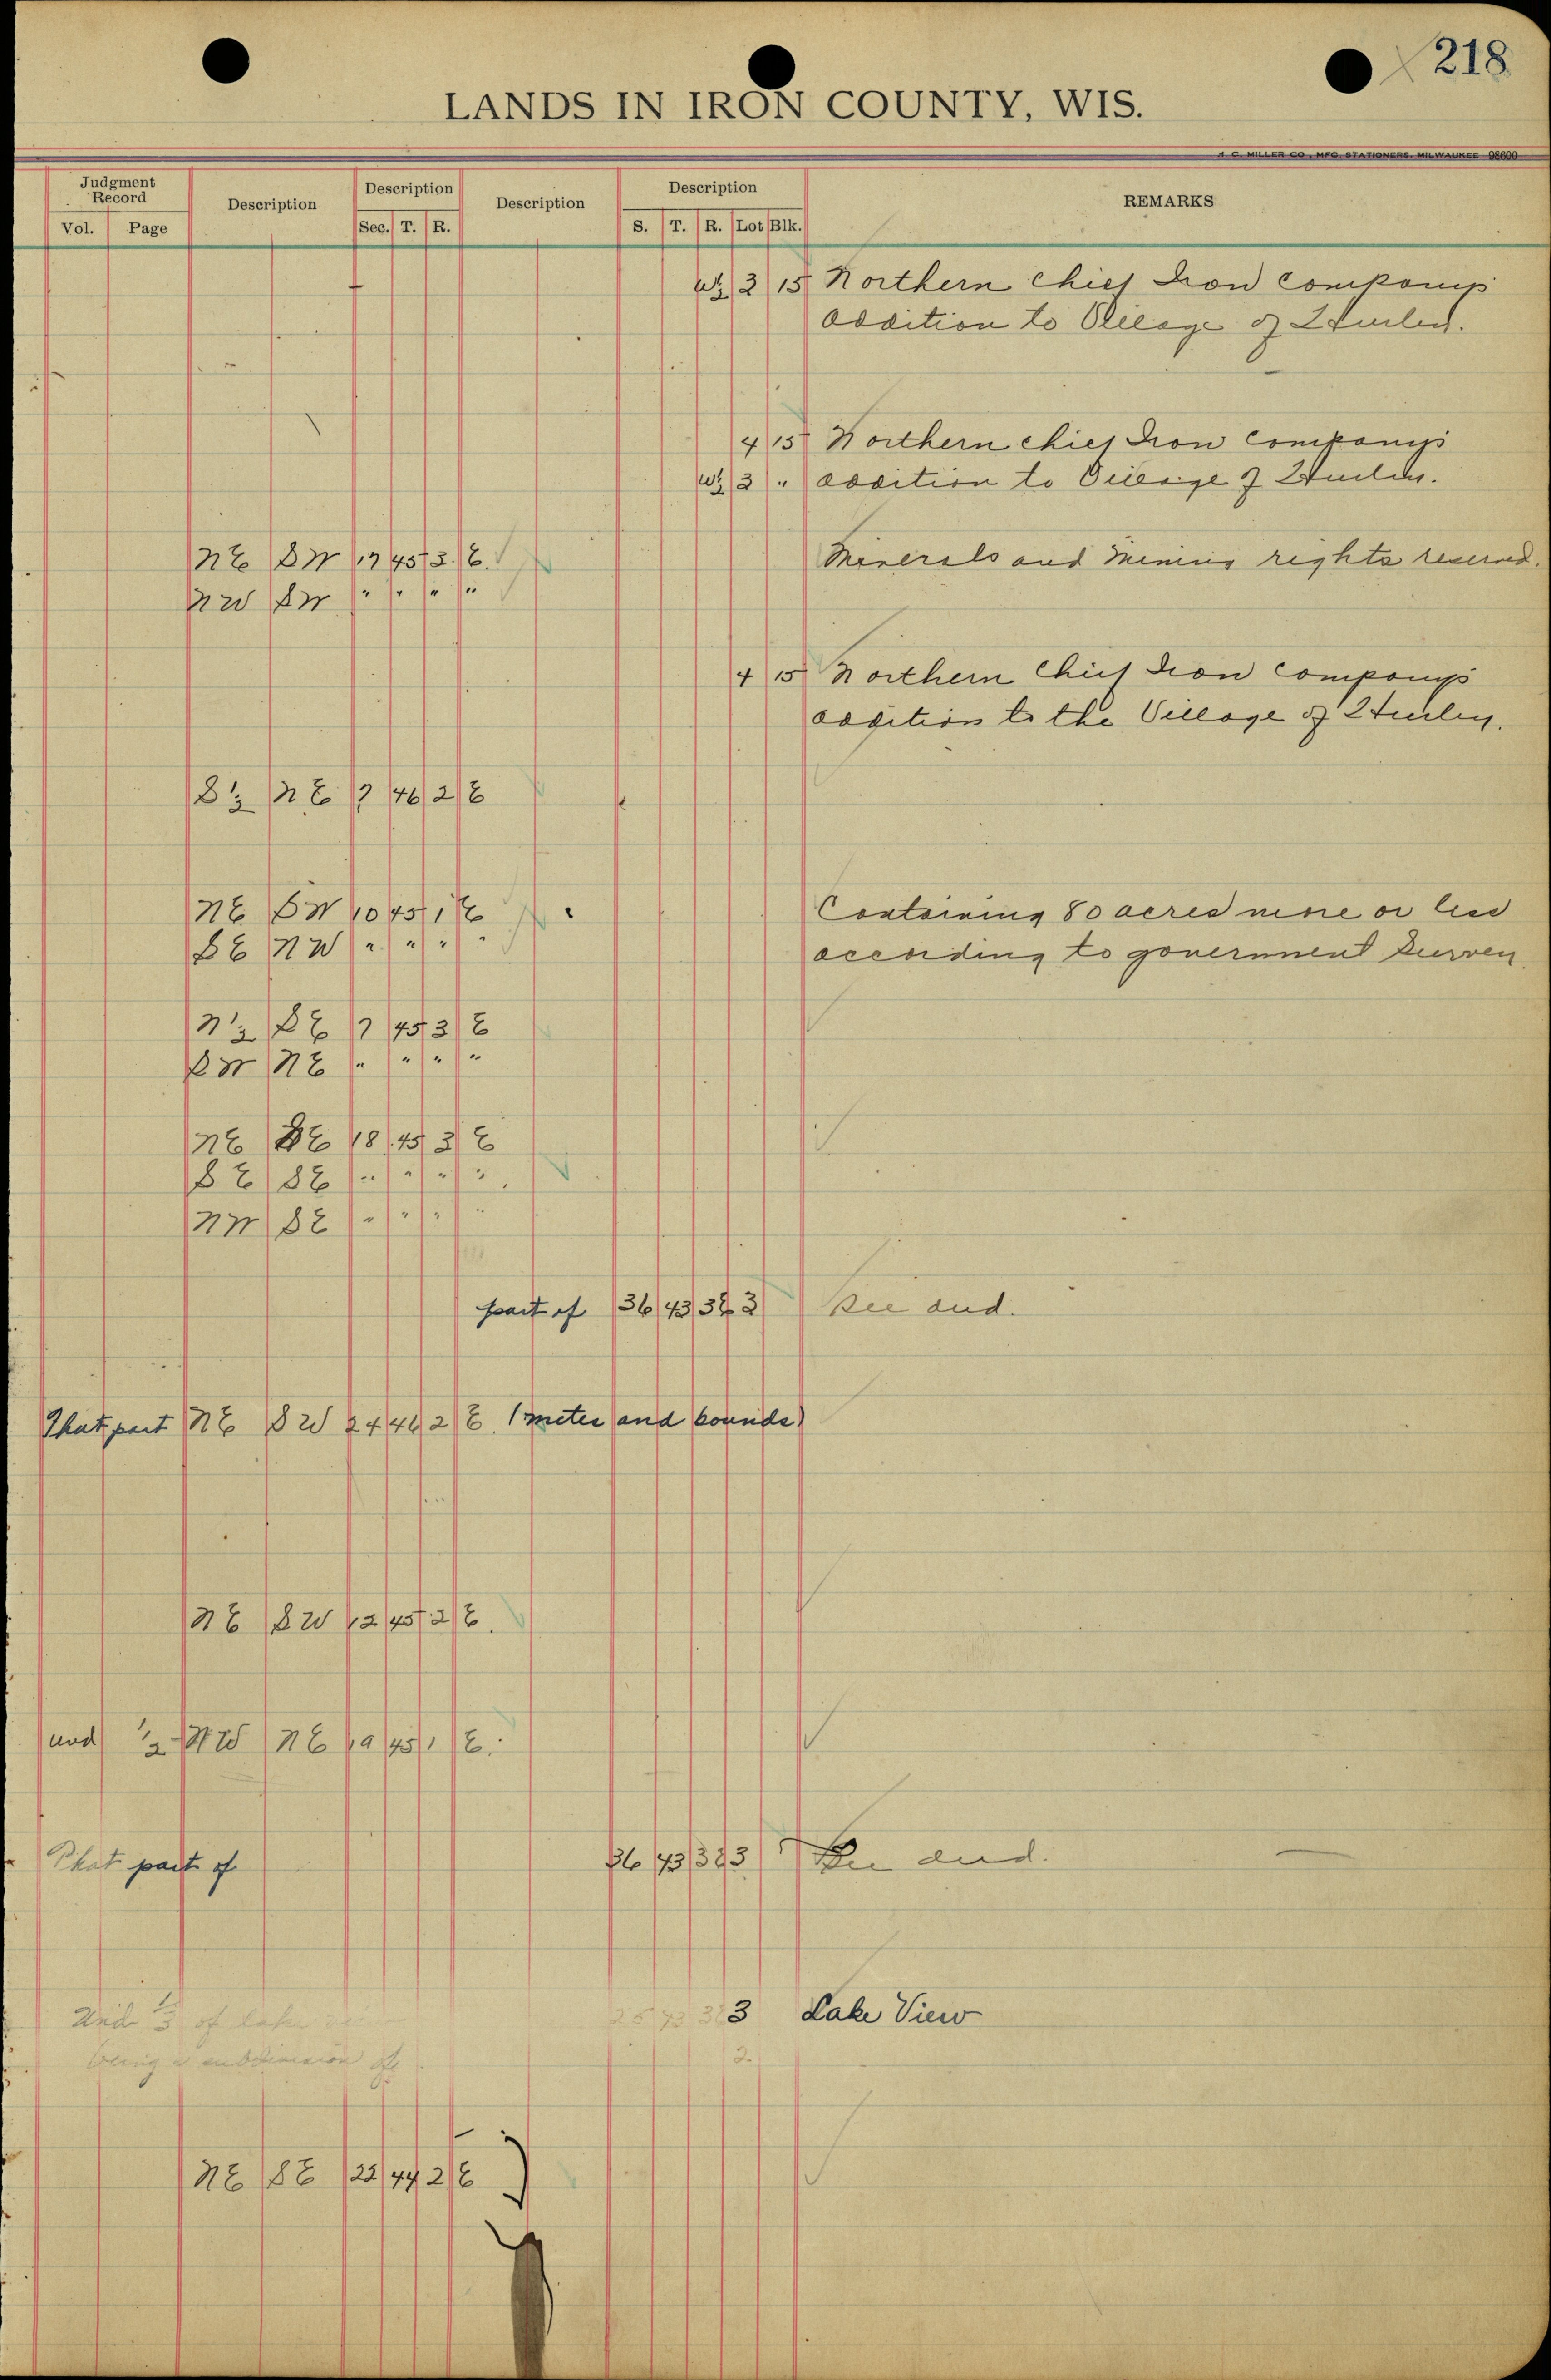 218
LANDS IN IRON COUNTY, WIS.
H. C. MILLER CO., MFG. STATIONERS, MILWAUKEE 98600
Judgment Record Description Description Description Description REMARKS
Vol. Page Sec. T. R. S. T. R. Lot Blk.
W½ 2 15 Northern Chief Iron Company's
addition to Village of Hurley.
4 15 Northern Chief Iron Company's
W½ 3 " addition to Village of Hurley.
NE SW 17 45 3 E. Minerals and Mining rights reserved.
NW SW " " " "
4 15 Northern Chief Iron Company's
addition to the Village of Hurley.
S½ NE 7 46 2 E
NE SW 10 45 1 E Containing 80 acres more or less
SE NW " " " " according to government survey
N½ SE 7 45 3 E
SW NE " " " "
NE SE 18 45 3 E
SE SE " " " "
NW SE " " " "
part of 36 43 3E 3 See und.
That part NE SW 24 46 2 E. (metes and bounds)
NE SW 12 45 2 E.
und ½ NW NE 19 45 1 E.
That part of 36 43 3E 3 See und.
Und ⅓ of lake 25 43 3E 3 Lake View
being a subdivision of 2
NE SE 22 44 2 E